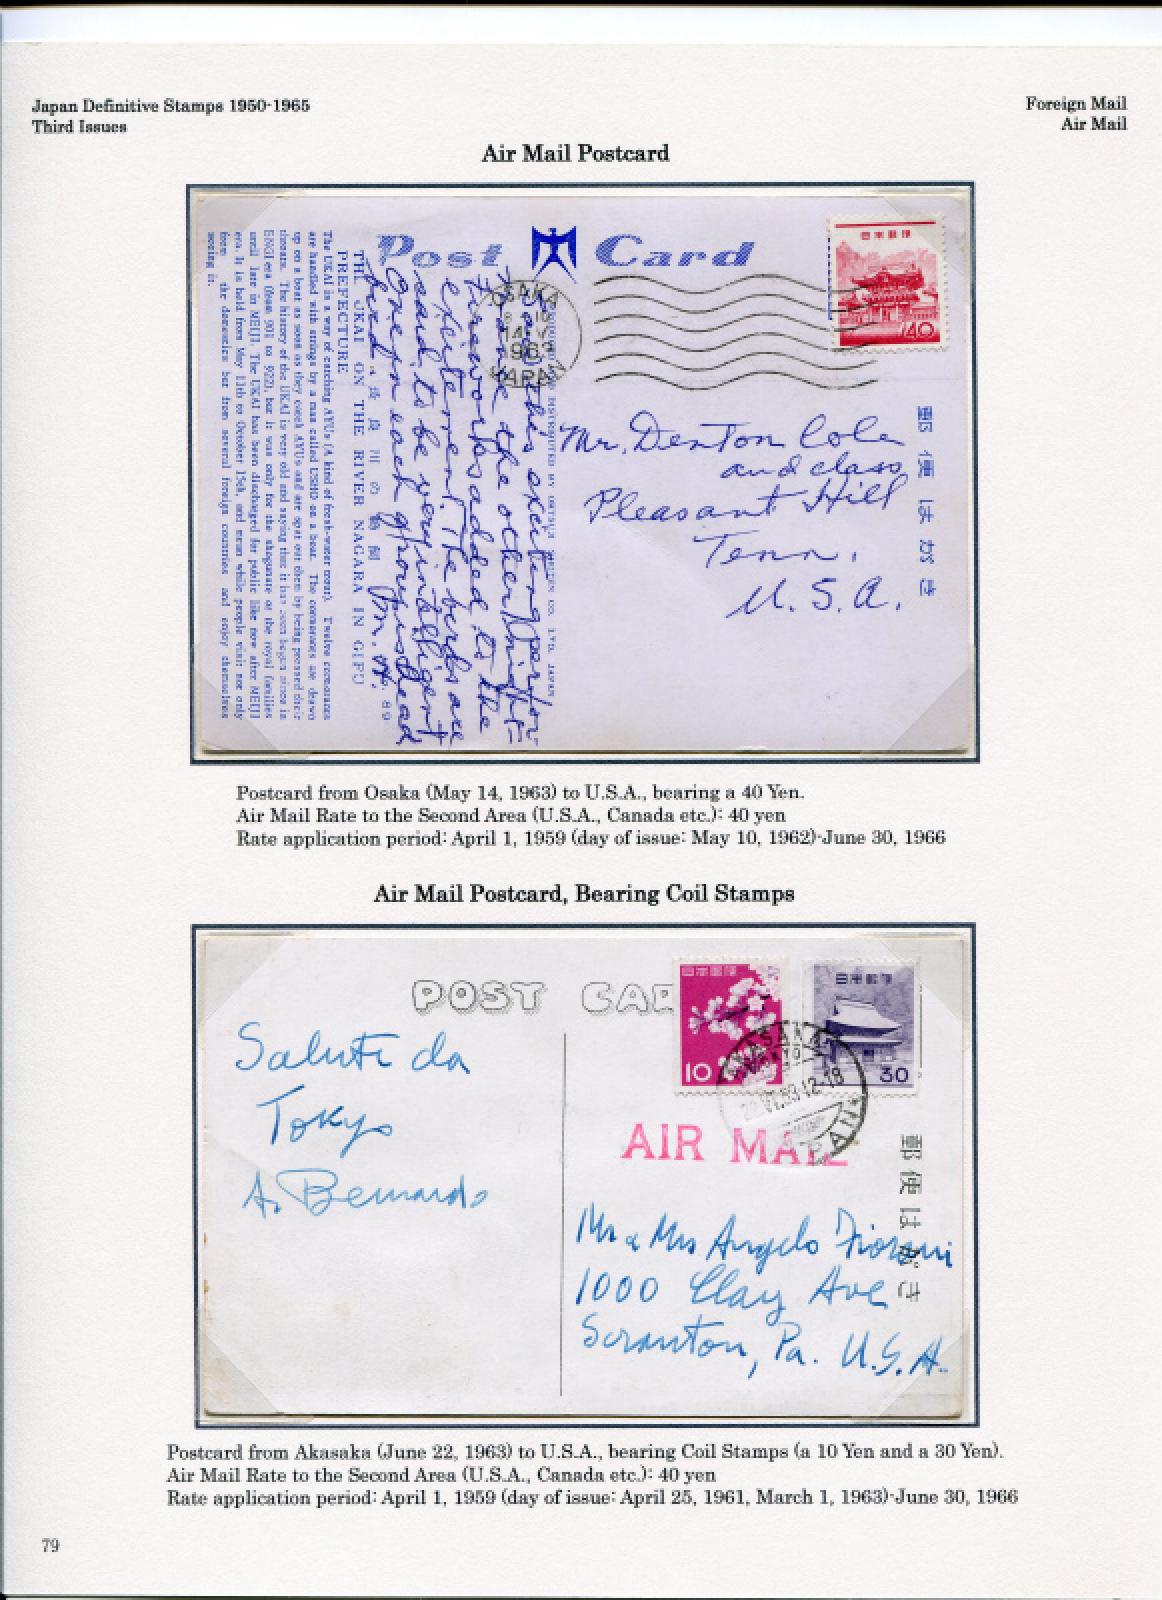 Japan Definitive Stamps 1950-1965
Third Issues
Foreign Mail
Air Mail
Air Mail Postcard
Post Card
日本郵便
40
OSAKA
14 V
1963
JAPAN
郵便はがき
Mr. Denton Cole
and class
Pleasant Hill
Tenn.
U. S. A.
Saw this exciting perfor-
mance the other night-
fireworks added to the
excitement. The birds are
said to be very intelligent
One in each group is head
bird.
M. H.
長良川の鵜飼
No. 89
THE UKAI ON THE RIVER NAGARA IN GIFU
PREFECTURE
The UKAI is a way of catching AYUs (A kind of fresh-water trout). Twelve cormorants
are handled with strings by a man called USHO on a boat. The cormorants are drawn
up on a boat as soon as they catch AYUs and are spat out them by being pressed their
throats. The history of the UKAI is very old and saying that it has been begun since in
ENGI era (from 901 to 922), but it was only for the shogunate or the royal families
until late in MEIJI. The UKAI has been discharged for public like now after MEIJI
era. It is held from May 11th to October 15th, and mean while people visit not only
from the domestics but from several foreign countries and enjoy themselves
seeing it.
Postcard from Osaka (May 14, 1963) to U.S.A., bearing a 40 Yen.
Air Mail Rate to the Second Area (U.S.A., Canada etc.): 40 yen
Rate application period: April 1, 1959 (day of issue: May 10, 1962)-June 30, 1966
Air Mail Postcard, Bearing Coil Stamps
POST CAR
日本郵便
10
日本郵便
30
AKASAKA
TOKYO
22.VI.63.12-18
JAPAN
AIR MAIL
郵便はがき
Saluti da
Tokyo
A. Bernardo
Mr & Mrs Angelo Fiorani
1000 Clay Ave
Scranton, Pa. U.S.A.
Postcard from Akasaka (June 22, 1963) to U.S.A., bearing Coil Stamps (a 10 Yen and a 30 Yen).
Air Mail Rate to the Second Area (U.S.A., Canada etc.): 40 yen
Rate application period: April 1, 1959 (day of issue: April 25, 1961, March 1, 1963)-June 30, 1966
79